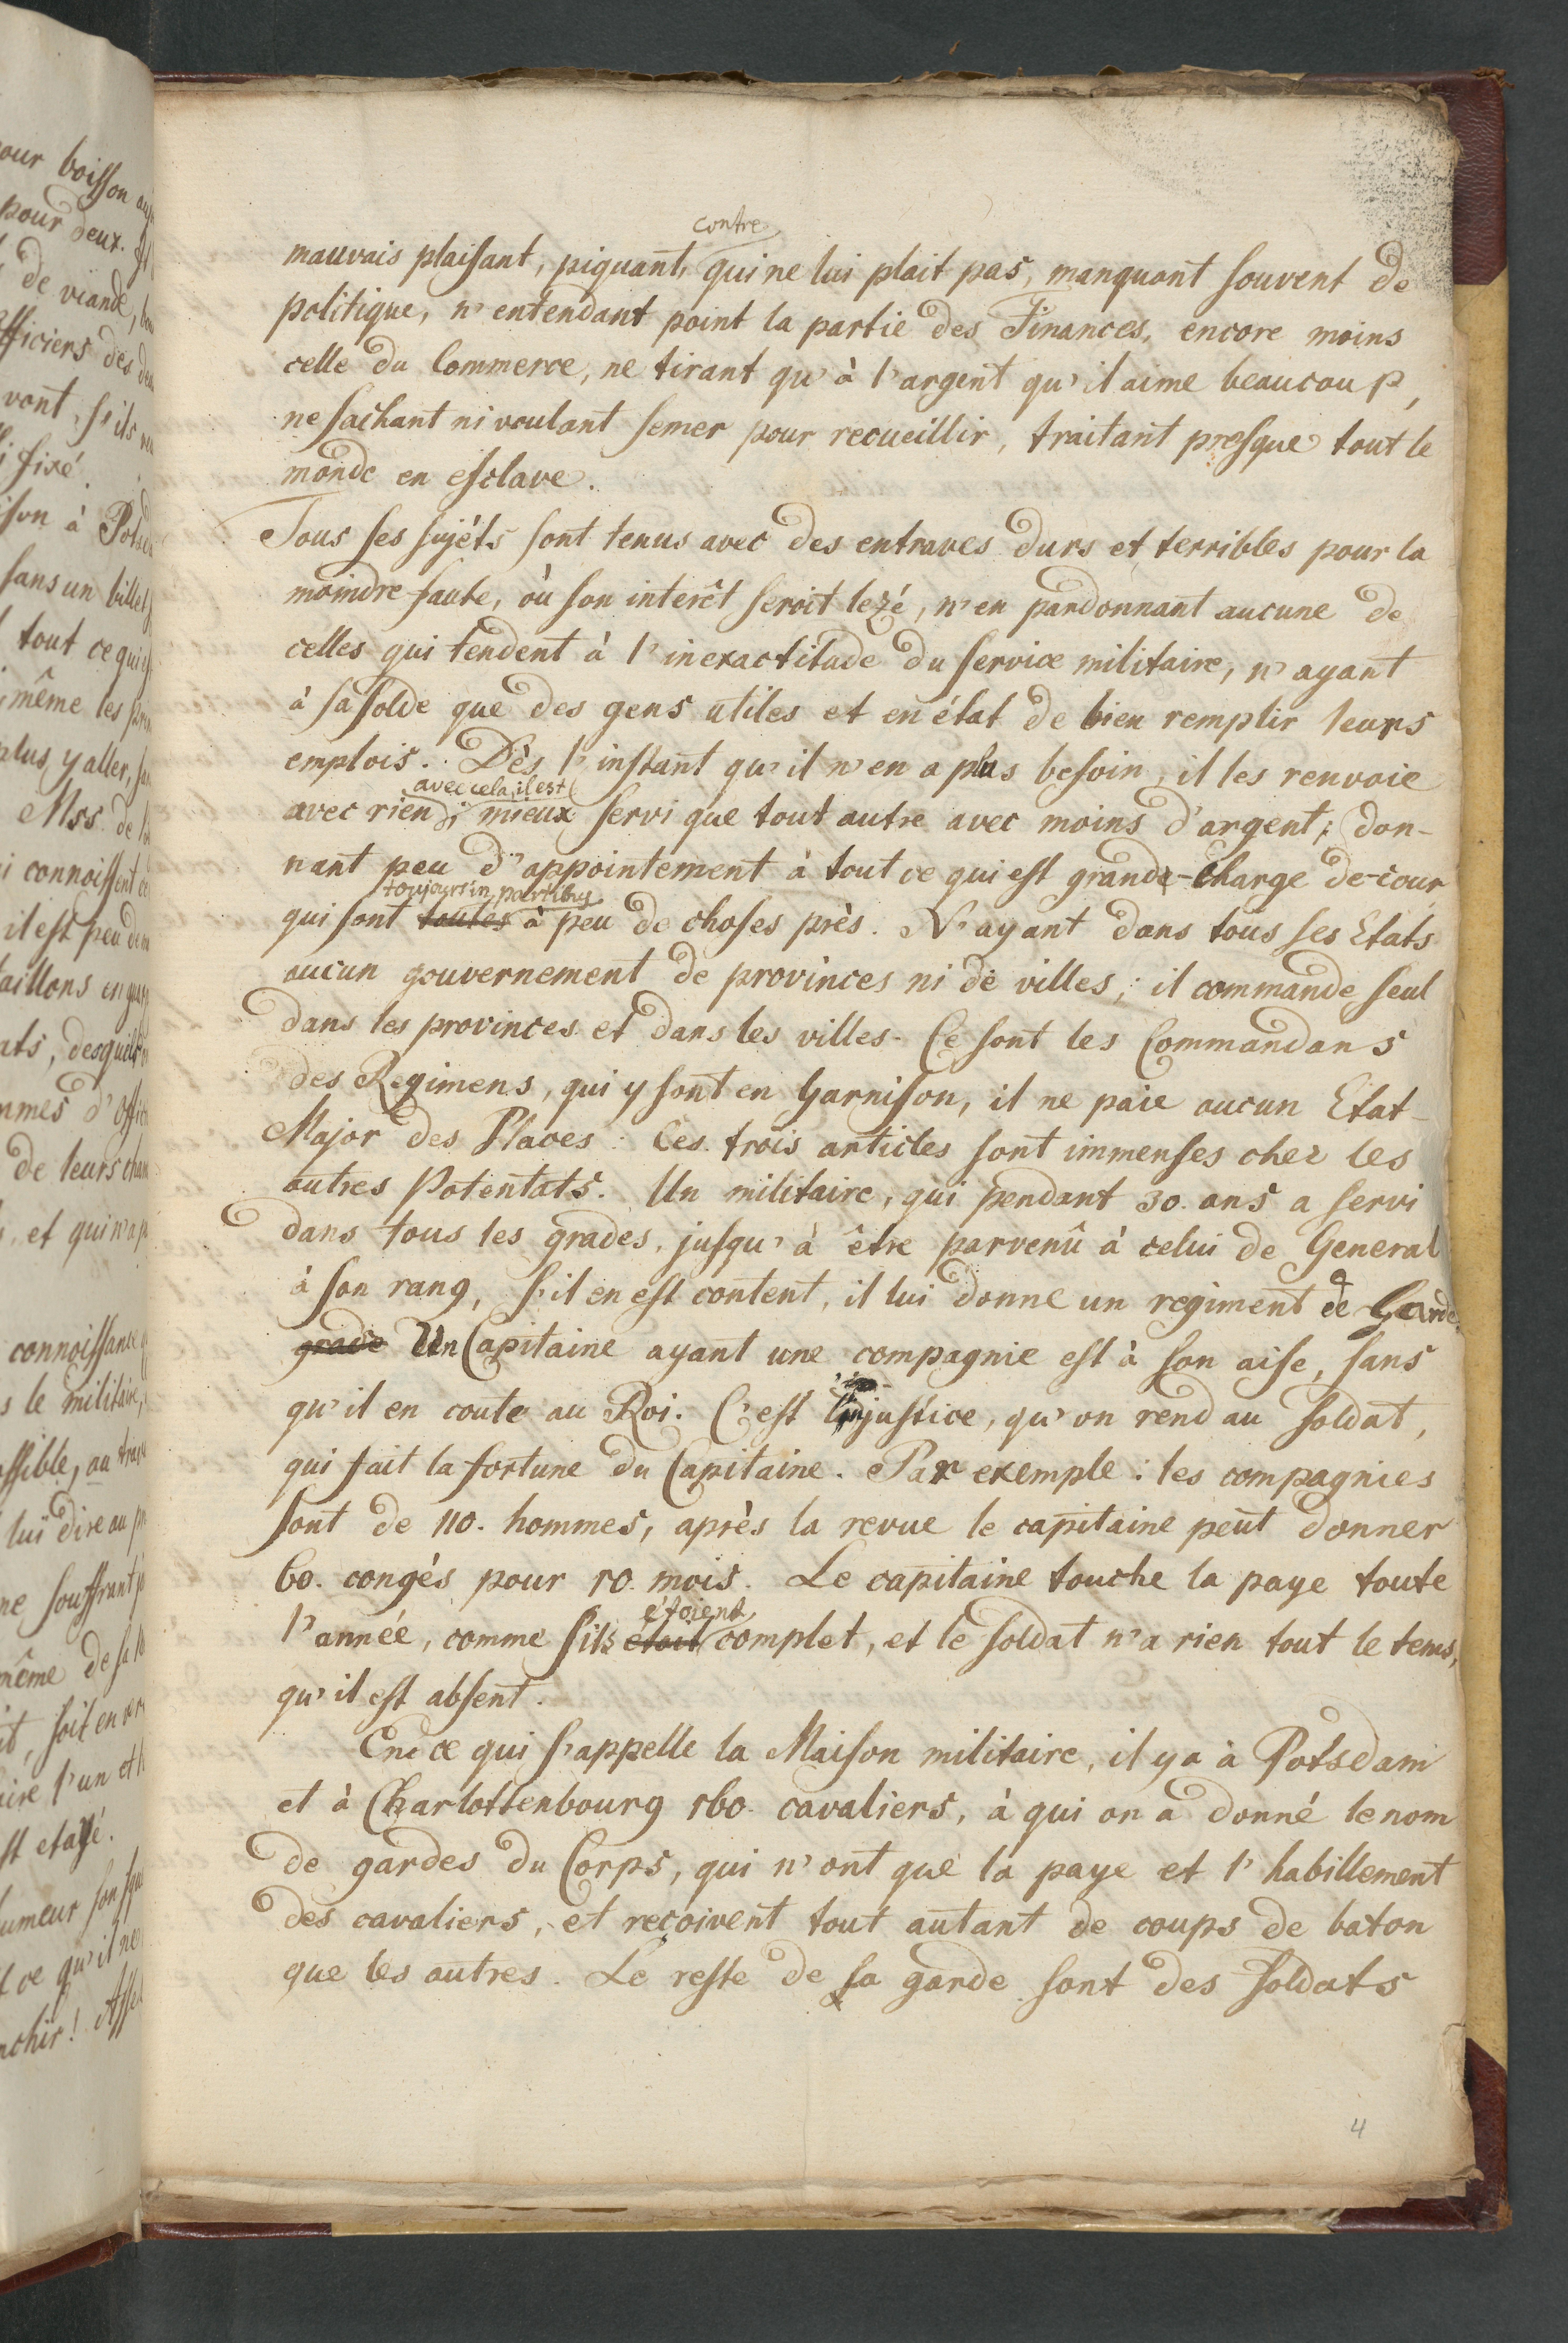 our boisson
pour deux.
de viande,
officiers des
vont, s'ils
fixé
son à
sans un billet
tout ce qui
même les
plus y aller,
Mss. de
connoissent
il est peu
taillons en
ats, desquels
mmes d'
de leurs
et qui n'a
connoissance
le militaire,
ssible, au
lui dire au
ne souffrant
même de sa
soit en
l'un et
st etayé.
umeur son
ce qu'il ne
nchir!
contre
mauvais plaisant, piquant, qui ne lui plait pas, manquant souvent de
politique, n'entendant point la partie des Finances, encore moins
celle du Commerce, ne tirant qu'à l'argent qu'il aime beaucoup,
ne sachant ni voulant semer pour recueillir, traitant presque tout le
monde en esclave.
Tous ses sujéts sont tenus avec des entraves durs et terribles pour la
moindre faute, où son interêt seroit lezé, n'en pardonnant aucune de
celles qui tendent à l'inexactitude du service militaire, n'ayant
à sa solde que des gens utiles et en état de bien remplir leurs
emplois. Dès l'instant qu'il n'en a plus besoin, il les renvoie
avec cela, il est
avec rien; mieux servi que tout autre avec moins d'argent; don-
nant peu d'appointement à tout ce qui est grande-Charge de-cour
toujours in partibus
qui sont toutes à peu de choses près. N'ayant dans tous ses Etats
aucun gouvernement de provinces ni de villes; il commande seul
dans les provinces et dans les villes. Ce sont les Commandans
des Regimens, qui y sont en Garnison, il ne paie aucun Etat-
Major des Places: Ces trois articles sont immenses chez les
autres Potentats. Un militaire, qui pendant 30. ans a servi
dans tous les grades, jusqu'à être parvenû à celui de General
à son rang, s'il en est content, il lui donne un regiment de Garde.
grade Un Capitaine ayant une compagnie est à son aise, sans
qu'il en coute au Roi. C'est l'injustice, qu'on rend au soldat,
qui fait la fortune du Capitaine. Par exemple: les compagnies
sont de 110. hommes, après la revue le capitaine peut donner
60. congés pour 10. mois. Le capitaine touche la paye toute
étoient
l'année, comme s'ils étoit complet, et le soldat n'a rien tout le tems,
qu'il est absent.
En ce qui s'appelle la Maison militaire, il y a à Potsdam
et à Charlottenbourg 160. cavaliers, à qui on a donné le nom
de gardes du Corps, qui n'ont que la paye et l'habillement
des cavaliers, et reçoivent tout autant de coups de baton
que les autres. Le reste de sa garde sont des soldats
4